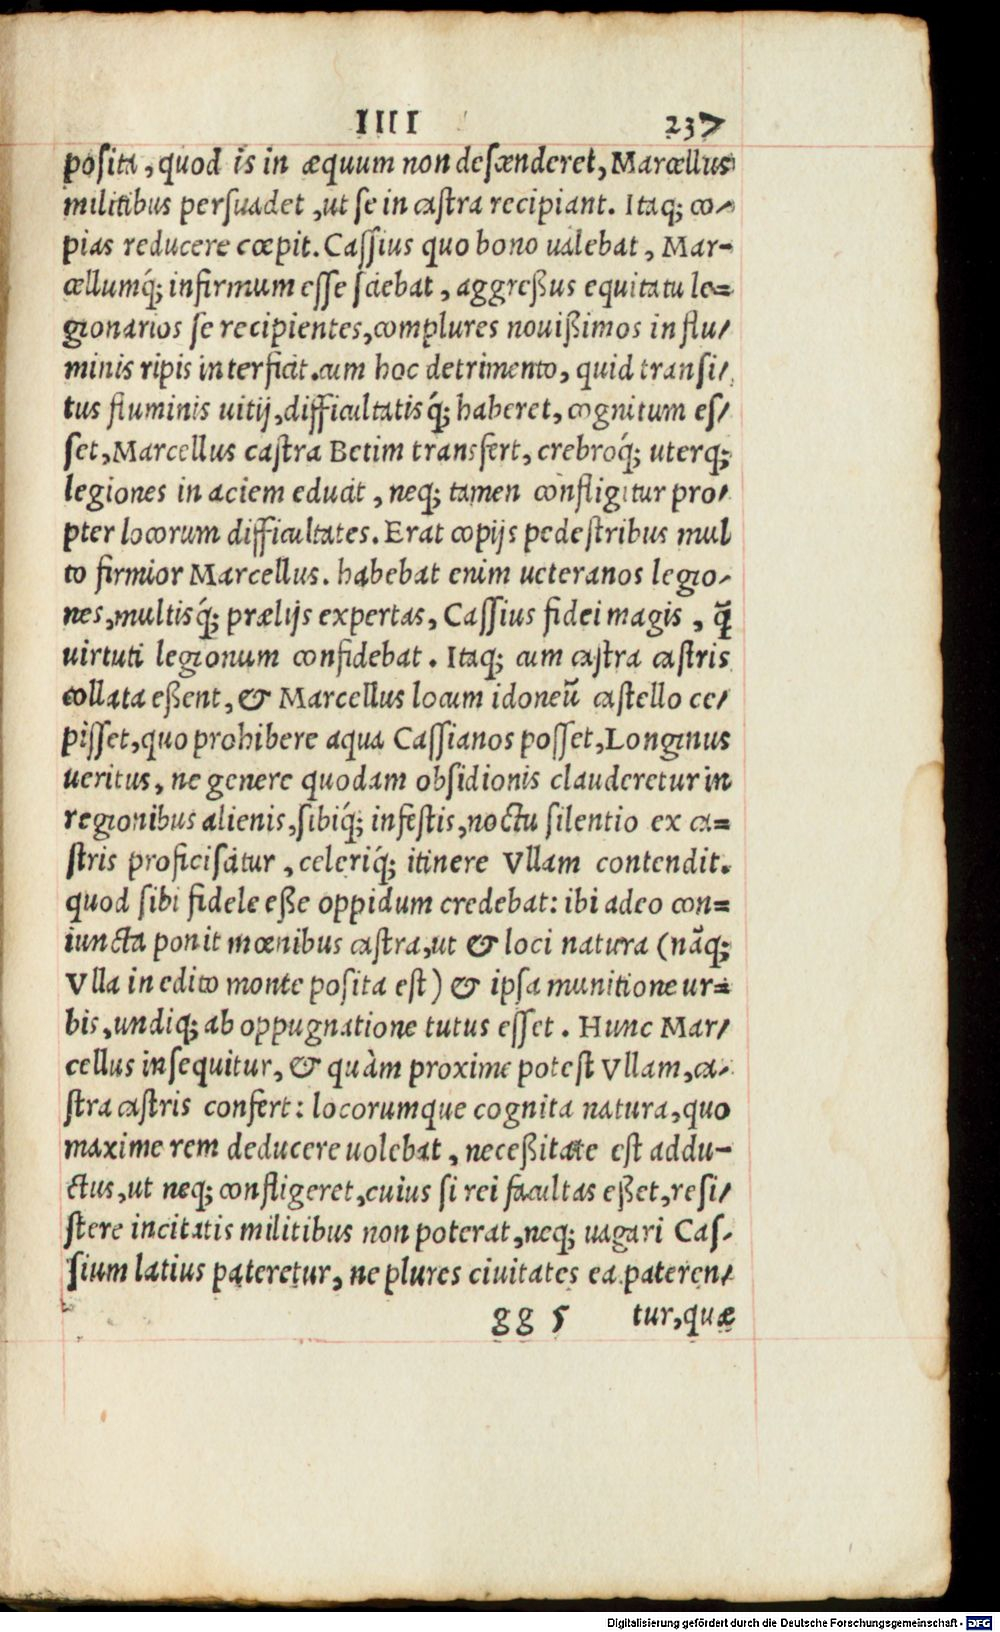 IIII 237
posita, quod is in æquum non descenderet, Marcellus
militibus persuadet, ut se in castra recipiant. Itaq; co-
pias reducere cœpit. Cassius quo bono ualebat, Mar-
cellumq́; infirmum esse sciebat, aggreßus equitatu le=
gionarios se recipientes, complures nouißimos in flu/
minis ripis interficit. cum hoc detrimento, quid transi/
tus fluminis uitij, difficultatisq́; haberet, cognitum es/
set, Marcellus castra Betim transfert, crebroq́; uterq;
legiones in aciem educit, neq; tamen confligitur pro/
pter locorum difficultates. Erat copijs pedestribus mul
to firmior Marcellus. habebat enim ueteranos legio/
nes, multisq́; prælijs expertas, Cassius fidei magis, q̃
uirtuti legionum confidebat. Itaq; cum castra castris
collata eßent, & Marcellus locum idoneũ castello ce/
pisset, quo prohibere aqua Cassianos posset, Longinus
ueritus, ne genere quodam obsidionis clauderetur in
regionibus alienis, sibiq́; infestis, noctu silentio ex ca=
stris proficiscitur, celeriq́; itinere Vllam contendit.
quod sibi fidele eße oppidum credebat: ibi adeo con=
iuncta ponit mœnibus castra, ut & loci natura (nãq;
Vlla in edito monte posita est) & ipsa munitione ur=
bis, undiq; ab oppugnatione tutus esset. Hunc Mar/
cellus insequitur, & quàm proxime potest Vllam, ca/
stra castris confert: locorumque cognita natura, quo
maxime rem deducere uolebat, neceßitate est addu-
ctus, ut neq; confligeret, cuius si rei facultas eßet, resi/
stere incitatis militibus non poterat, neq; uagari Cas/
sium latius pateretur, ne plures ciuitates ea pateren/
gg 5 tur, quæ
Digitalisierung gefördert durch die Deutsche Forschungsgemeinschaft - DFG